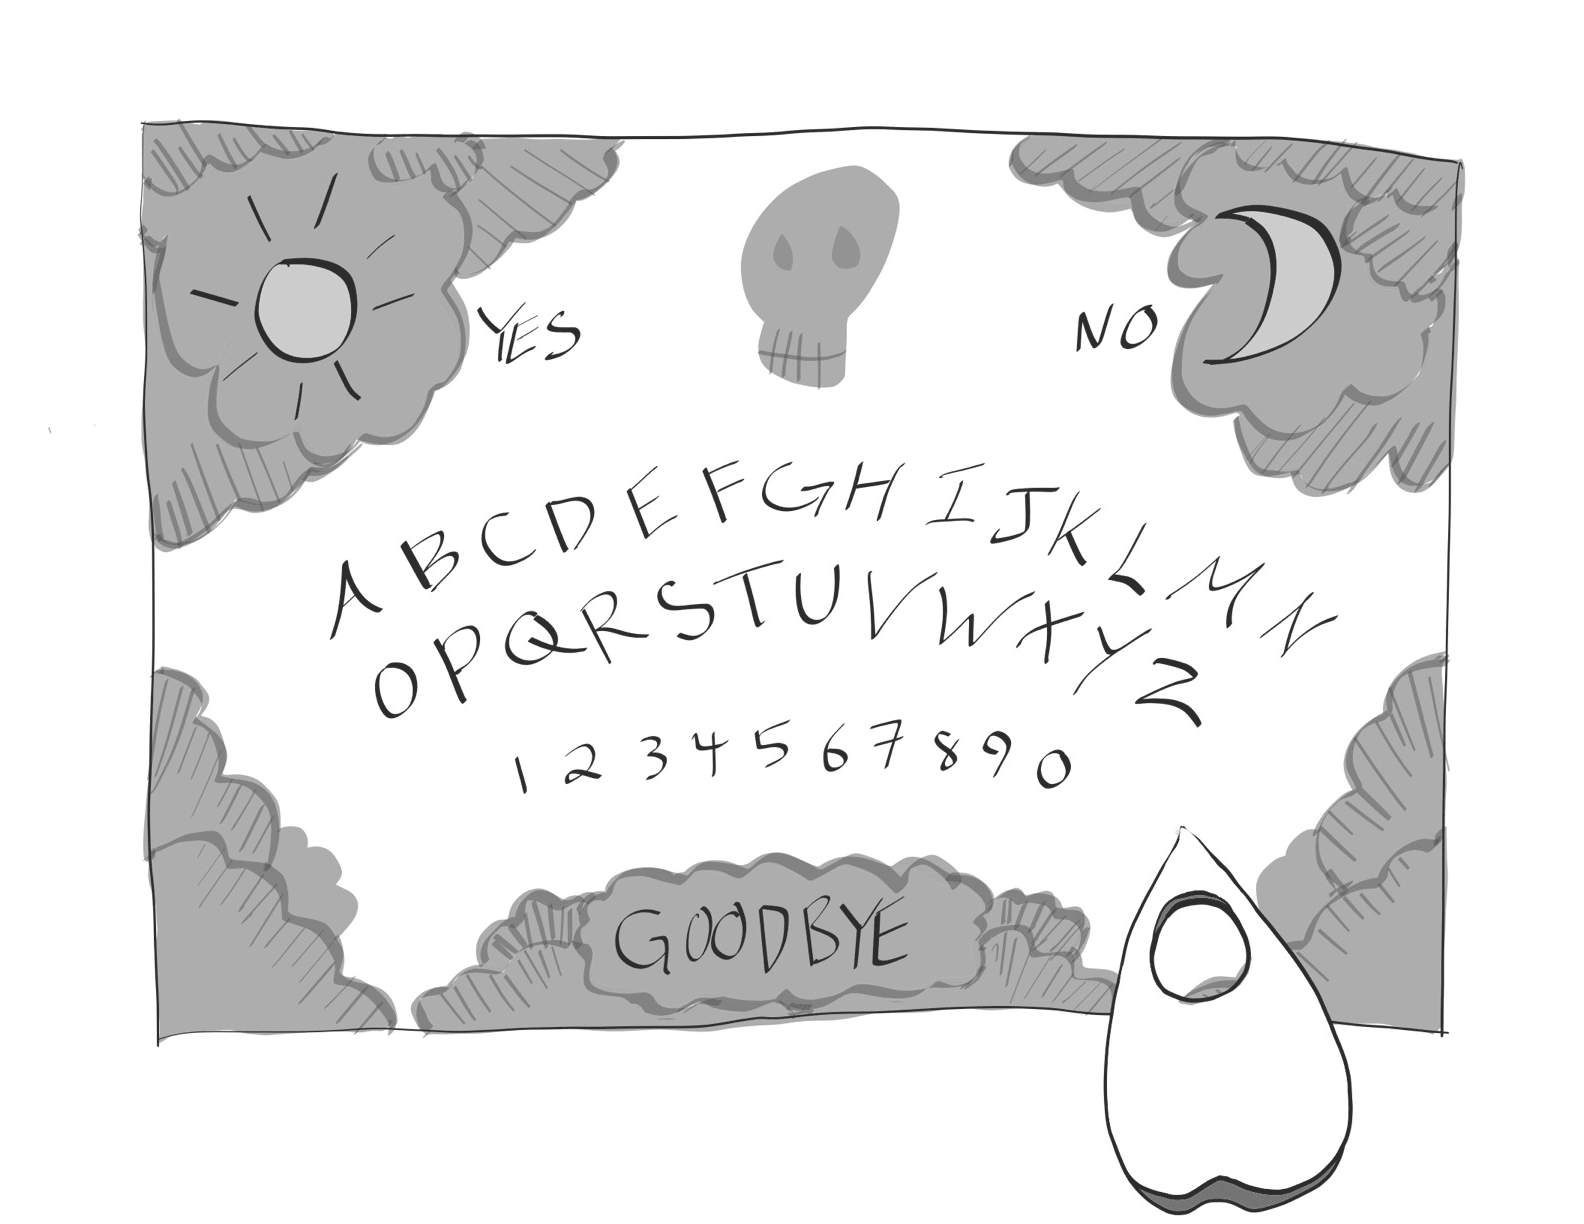 YES
NO
A B C D E F G H I J K L M N
O P Q R S T U V W X Y Z
1 2 3 4 5 6 7 8 9 0
GOODBYE